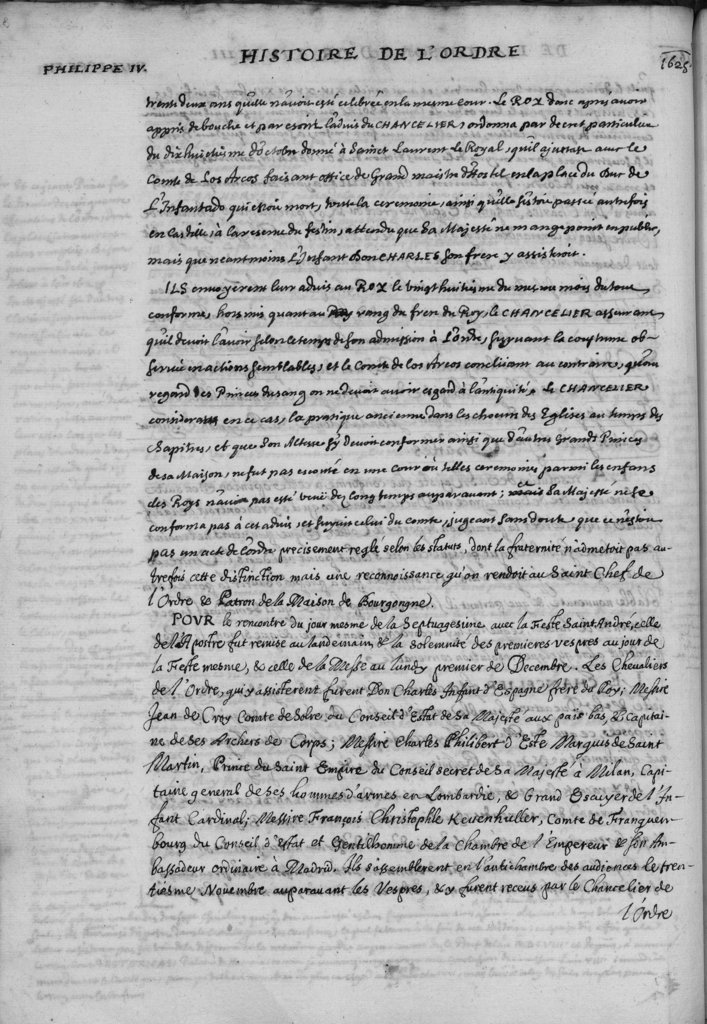 HISTOIRE DE L'ORDRE
PHILIPPE IV.
1625.
trente deux ans qu'elle n'avoit esté celebrée en la mesme cour. Le ROY donc apres avoir
appris de bouche et par escrit l'aduis du CHANCELIER, ordonna par decret particulier
du dixhuictiesme d'Octobre donné à Sainct Laurent le Royal, qu'il ajustast avec le
Comte de Los Arcos faisant office de Grand maistre d'Hostel en la place du Duc de
L'Infantado qui estoit mort, toute la ceremonie, ainsi qu'elle s'estoit passée autrefois
en Castille, à la reserve du festin, attendu que Sa Majesté ne mange point en public,
mais que neantmoins L'Infant Don CHARLES son frere y assisteroit.
ILS envoyerent leur aduis au ROY le vingthuitiesme du mesme mois du tout
conforme, hors mis quant au rang du frere du Roy, le CHANCELIER asseurant
qu'il devoit l'avoir selon le temps de son admission à l'ordre, suyvant la coustume ob-
servée en actions semblables, et le Comte de los Arcos concluant au contraire, qu'au
regard des Princes du sang on ne devoit avoir esgard à l'antiquité. Le CHANCELIER
considerant en ce cas, la pratique ancienne dans les choeurs des Eglises au temps des
Chapitres, et que Son Altesse s'y devoit conformer ainsi que d'autres Grands Princes
de sa Maison, ne fut pas escouté en une cour où telles ceremonies parmi les enfans
des Roys n'avoient pas esté veuë de long temps auparavant; Sa Majesté ne se
conforma pas à cet aduis, et suyvit celui du comte, jugeant sans doute que ce n'estoit
pas un acte de l'ordre precisement reglé selon les statuts, dont la fraternité n'admetoit pas au-
trefois cette distinction mais une reconnoissance qu'on rendoit au Saint Chef de
l'Ordre & Patron de la Maison de Bourgongne.
POUR le rencontre du jour mesme de la Septuagesime avec la Feste Saint André, celle
de l'Apostre fut remise au landemain, & la solemnité des premieres vespres au jour de
la Feste mesme, & celle de la Messe au lundy premier de Decembre. Les Chevaliers
de l'Ordre, qui y assisterent furent Don Charles Infant d'Espagne frere du Roy; Messire
Jean de Croy Comte de Solre du Conseil d'Estat de Sa Majesté aux païs bas, & Capitai-
ne de Ses Archers de Corps; Messire Charles Philibert d'Este Marquis de Saint
Martin, Prince du Saint Empire du Conseil secret de Sa Majesté à Milan, Capi-
taine general de Ses hommes d'armes en Lombardie, & Grand Escuyer de l'In-
fant Cardinal; Messire François Christophle Kevenhuller, Comte de Franquen-
bourg du Conseil d'Estat et Gentilhomme de la Chambre de l'Empereur & son Am-
bassadeur ordinaire à Madrid. Ils s'assemblerent en l'antichambre des audiences le tren-
tiesme Novembre auparavant les Vespres, & y furent receus par le Chancelier de
l'Ordre